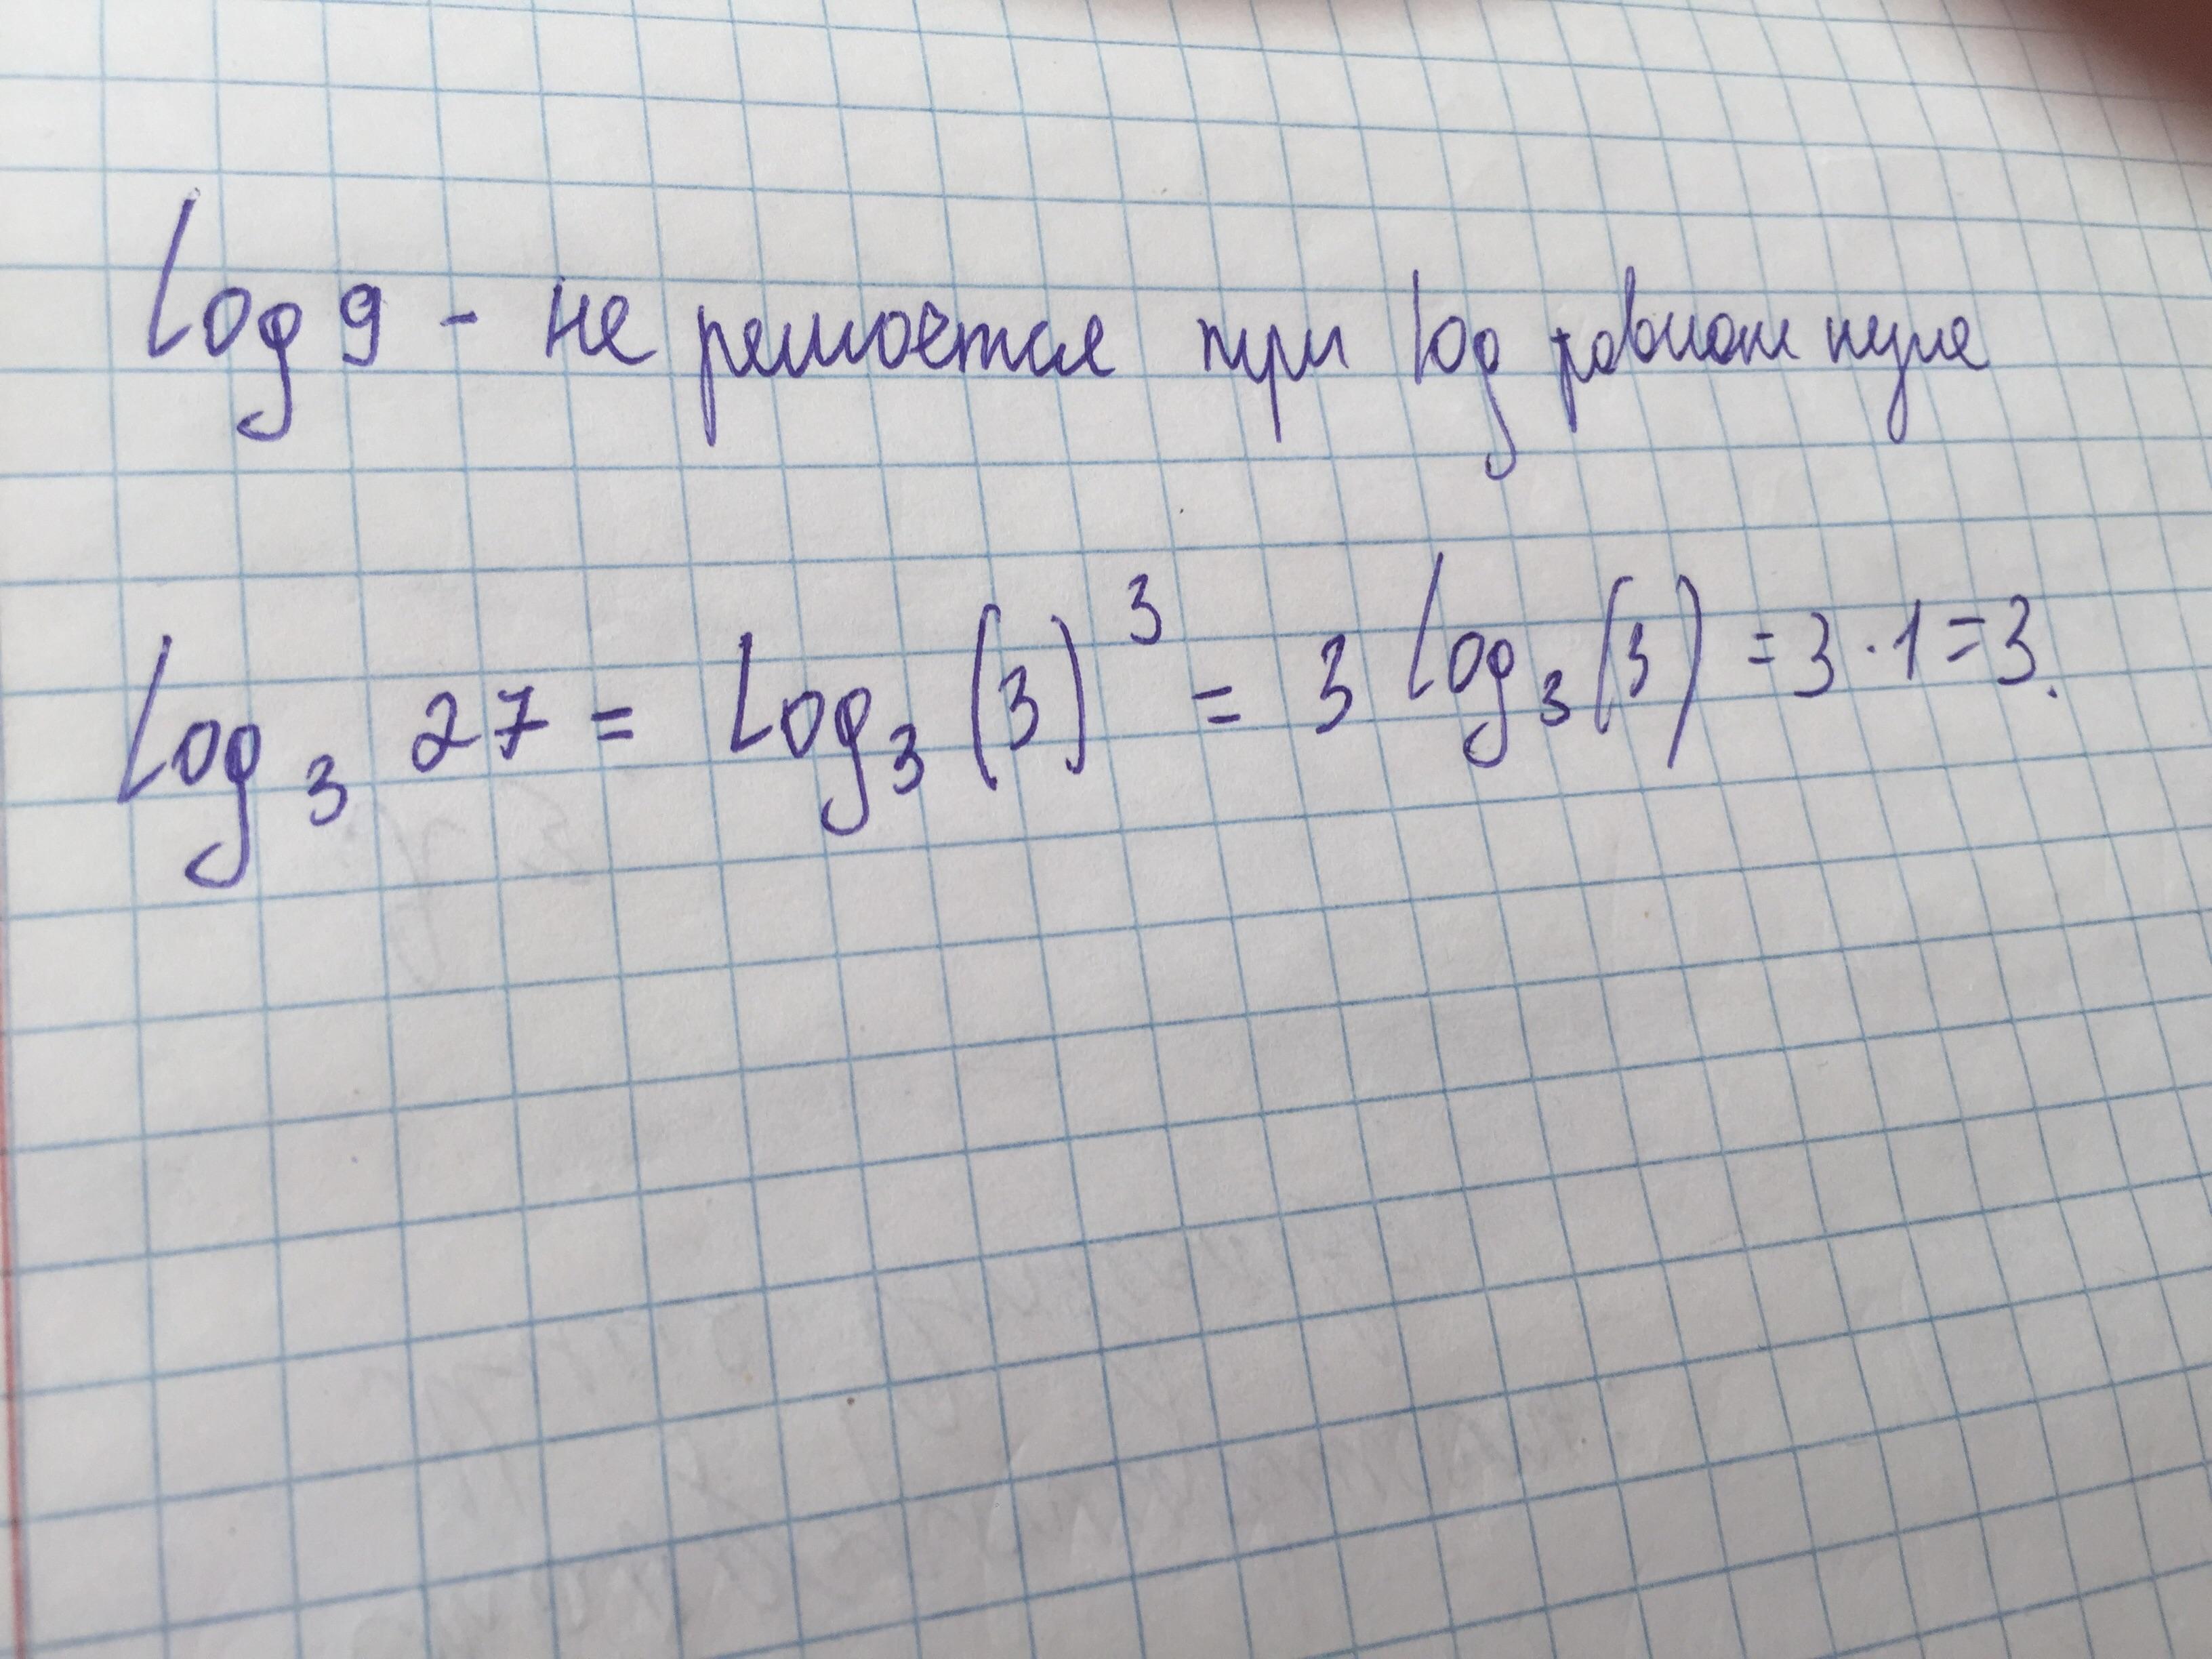 log 9 - не решается при log равном нулю
log₃ 27 = log₃ (3)³ = 3 log₃ (3) = 3 · 1 = 3.